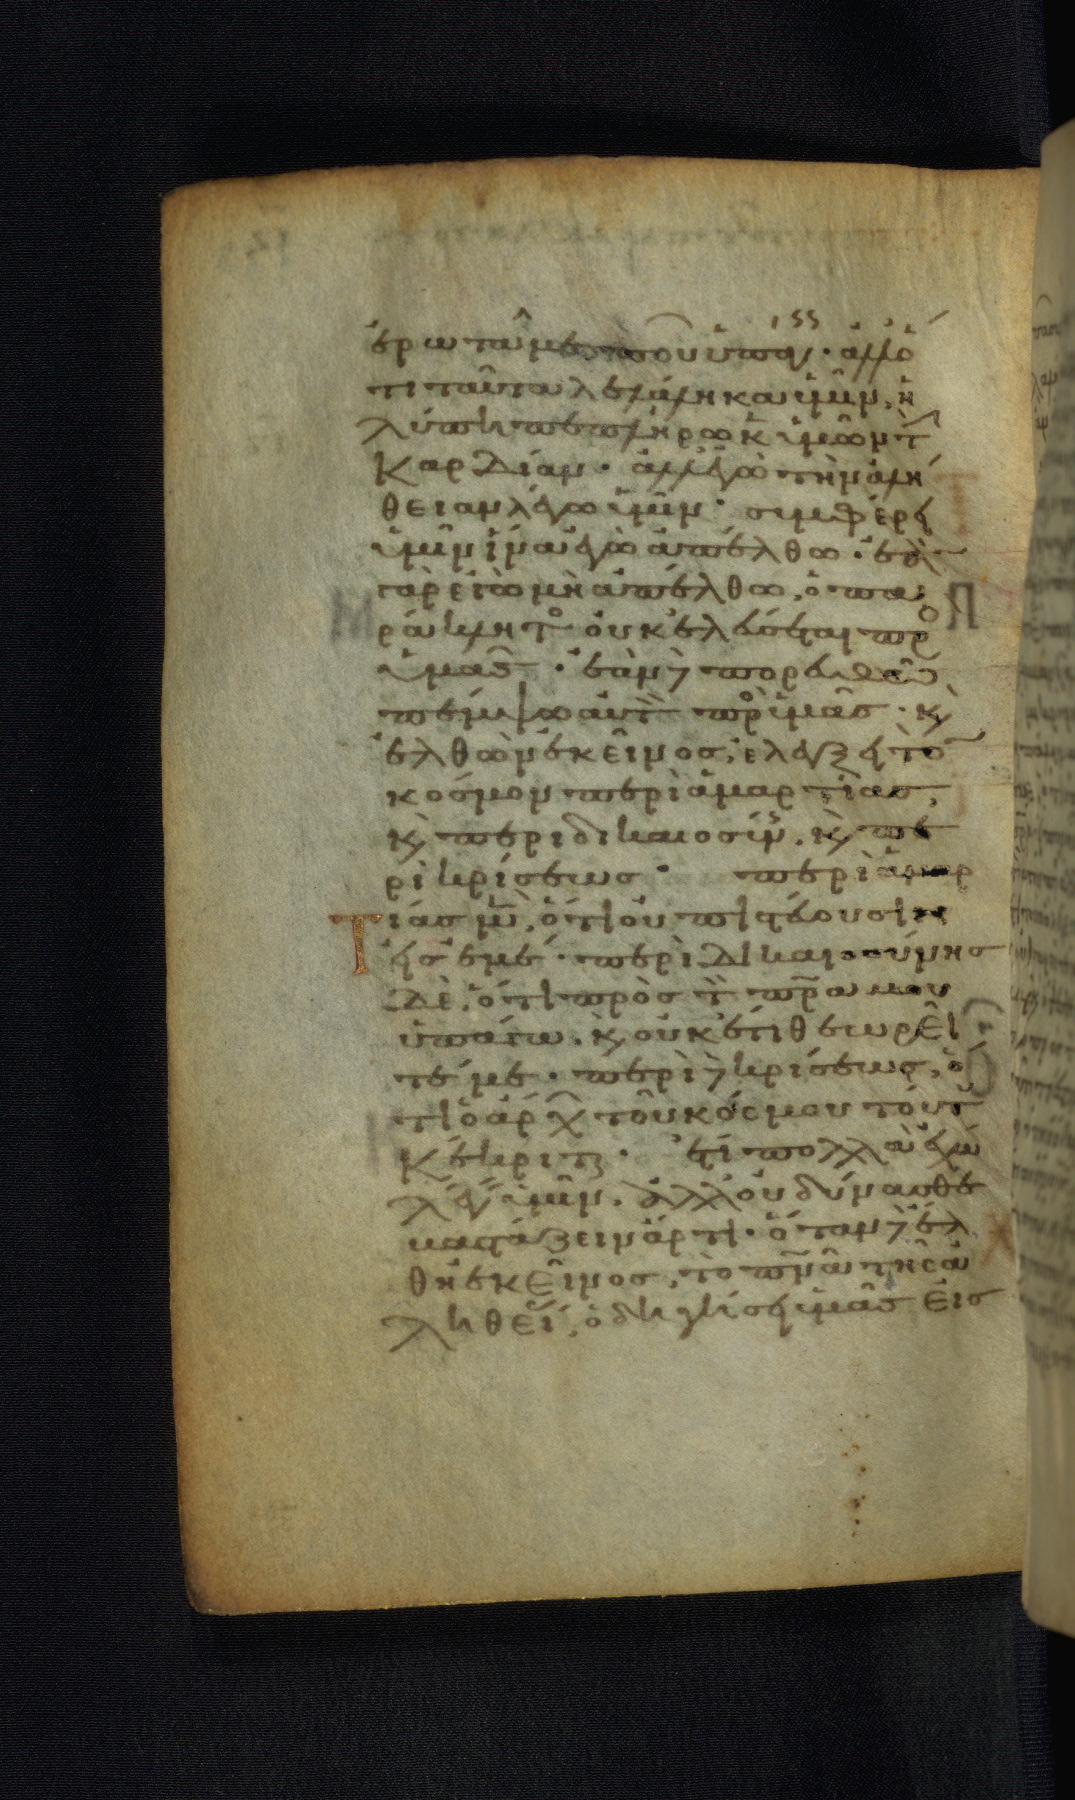 ἐρωτᾶ με ποῦ ὑπάγεις· ἀλλ' ὅ
τι ταῦτα λελάληκα ὑμῖν, ἡ
λύπη πεπλήρωκεν ὑμῶν τὴν
καρδίαν· ἀλλ' ἐγὼ τὴν ἀλή
θειαν λέγω ὑμῖν· συμφέρει
ὑμῖν ἵνα ἐγὼ ἀπέλθω· ἐὰν
γὰρ ἐγὼ μὴ ἀπέλθω, ὁ πα
ράκλητος οὐκ ἐλεύσεται πρὸς
ὑμᾶς· ἐὰν δὲ πορευθῶ
πέμψω αὐτὸν πρὸς ὑμᾶς· κ
ἐλθὼν ἐκεῖνος, ἐλέγξει τὸν
κόσμον περὶ ἁμαρτίας,
κ περὶ δικαιοσύνης, κ πε
ρὶ κρίσεως· περὶ ἁμαρ
τίας μὲν, ὅτι οὐ πιστεύουσιν
εἰς ἐμέ· περὶ δικαιοσύνης
δὲ, ὅτι πρὸς τὸν πρα μου
ὑπάγω, κ οὐκ ἔτι θεωρεῖ
τέ με· περὶ δὲ κρίσεως, ὅ
τι ὁ ἄρχων τοῦ κόσμου τούτου
κέκριται· ἔτι πολλὰ ἔχω
λέγειν ὑμῖν, ἀλλ' οὐ δύνασθε
βαστάζειν ἄρτι· ὅταν δὲ ἔλ
θη ἐκεῖνος, τὸ πνα τῆς ἀ
ληθείας, ὁδηγήσει ὑμᾶς εἰς